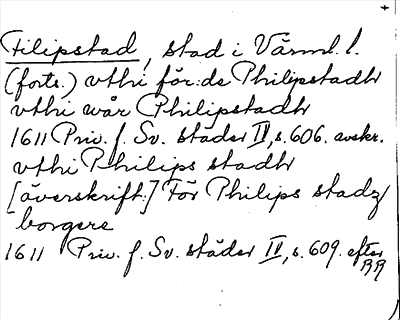 Filipstad, stad i Värml. l.
(forts.) vthi för:de Philipstadh
vthi wår Philipstadh
1611 Priv. f. Sv. städer II, s. 606. avskr.
vthi Philips stadh
[överskrift:] För Philips stadz
borgere
1611 Priv. f. Sv. städer II, s. 609. efter
RR